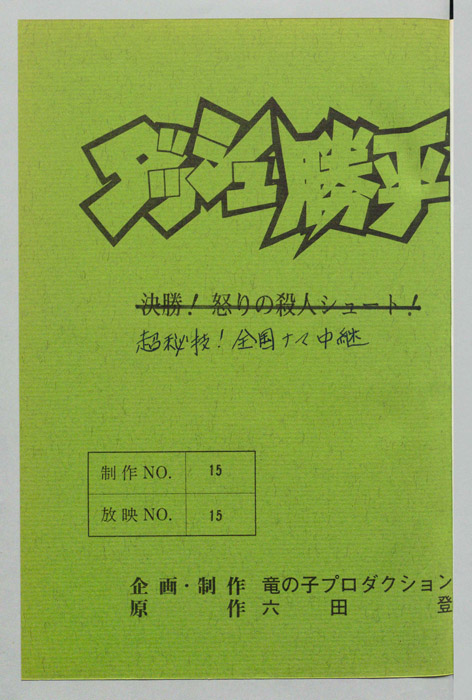 ダッシュ勝平
決勝！怒りの殺人シュート！
超秘技！全国ナマ中継
制作NO. 15
放映NO. 15
企画・制作 竜の子プロダクション
原作 六田登